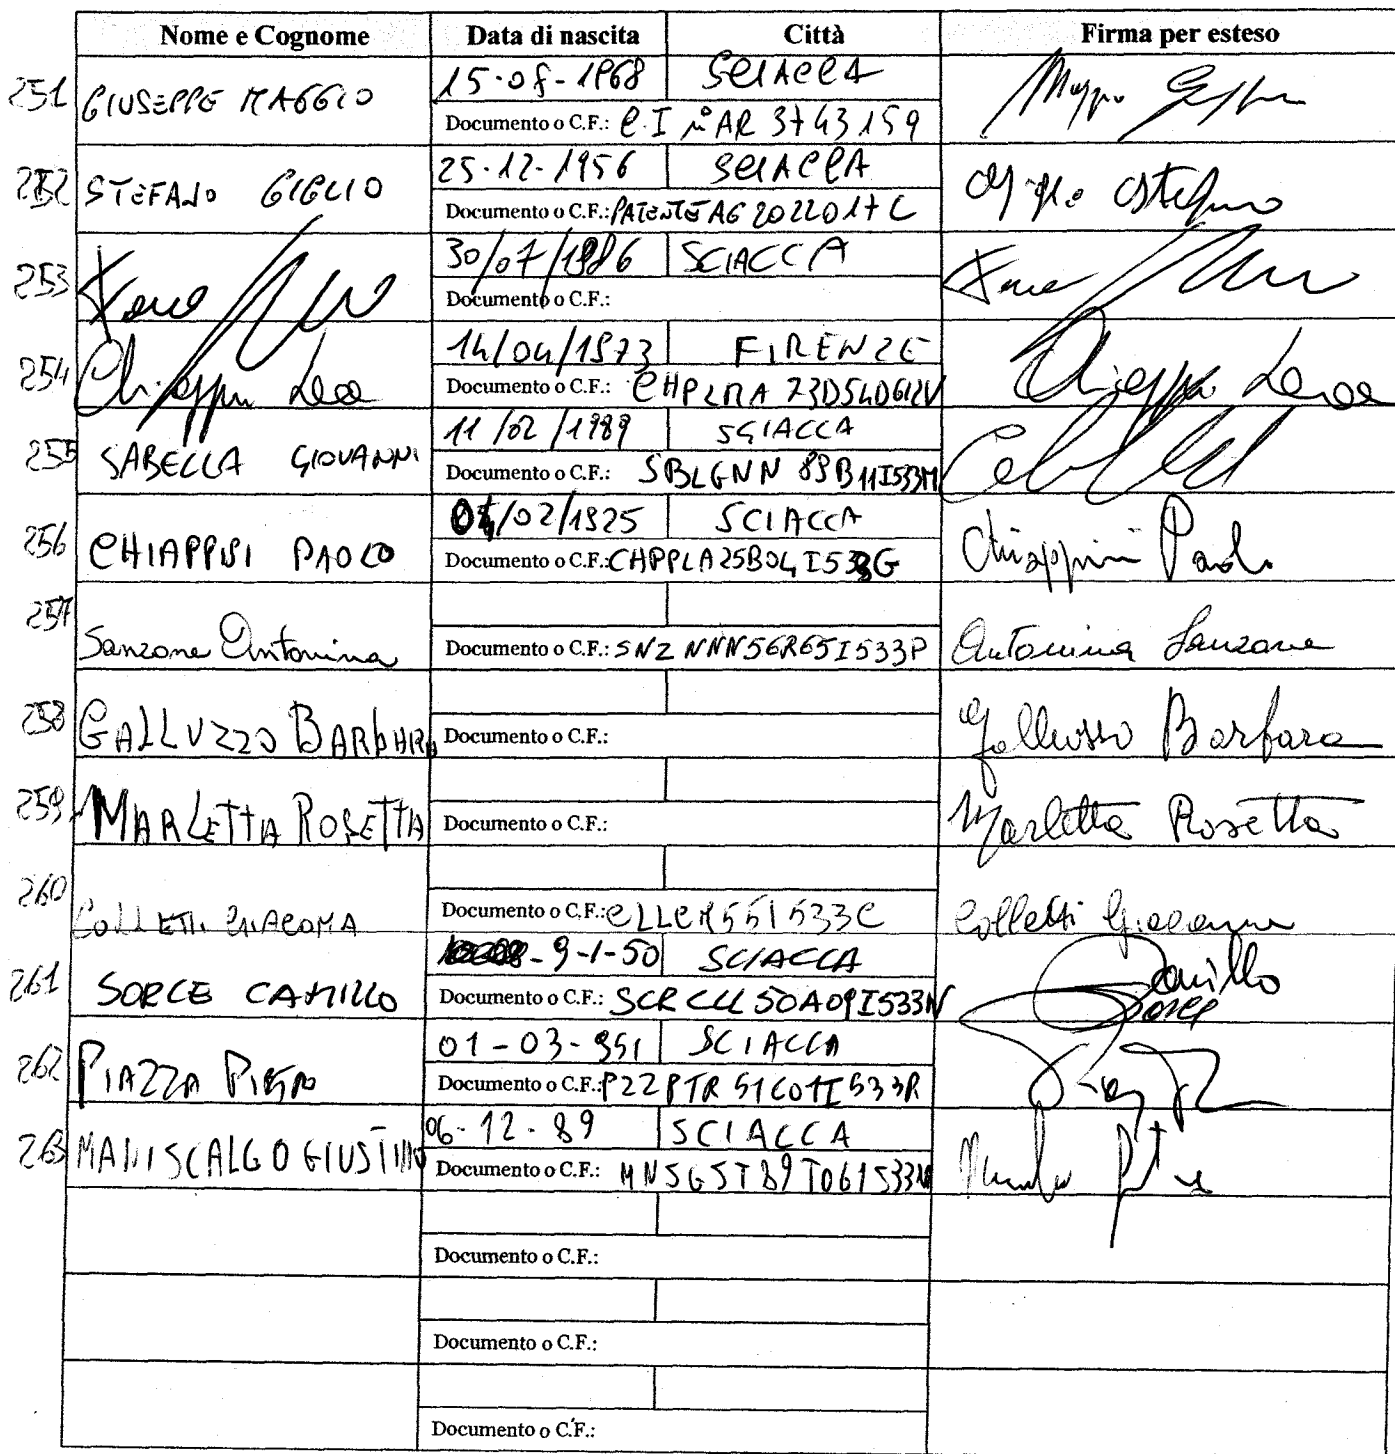 Nome e Cognome Data di nascita Città Firma per esteso
251 GIUSEPPE MAGGIO 15-08-1968 SCIACCA
Documento o C.F.: C.I n° AR 3743159
252 STEFANO GIGLIO 25-12-1956 SCIACCA Giglio Stefano
Documento o C.F.: PATENTE AG 2022017 C
253 30/07/1986 SCIACCA
Documento o C.F.:
254 14/04/1973 FIRENZE
Documento o C.F.: CHPLRA 73D54D612V
255 SABELLA GIOVANNI 11/02/1989 SCIACCA
Documento o C.F.: SBLGNN 89B11I533M
256 CHIAPPISI PAOLO 04/02/1925 SCIACCA Chiappisi Paolo
Documento o C.F.: CHPPLA25B04I533G
257 Sanzone Antonina Antonina Sanzone
Documento o C.F.: SNZ NNN56R65I533P
258 GALLUZZO BARBARA Galluzzo Barbara
Documento o C.F.:
259 MARLETTA ROSETTA Marletta Rosetta
Documento o C.F.:
260 COLLETTI GIACOMA Colletti Giacoma
Documento o C.F.: CLLCM551533C
261 SORCE CAMILLO 9-1-50 SCIACCA Camillo Sorce
Documento o C.F.: SCR CLL 50A09I533N
262 PIAZZA PIETRO 01-03-951 SCIACCA
Documento o C.F.: PZZPTR 51C01I533R
263 MANISCALCO GIUSTINO 06-12-89 SCIACCA
Documento o C.F.: MNSGST89T06I533N
Documento o C.F.:
Documento o C.F.:
Documento o C.F.: